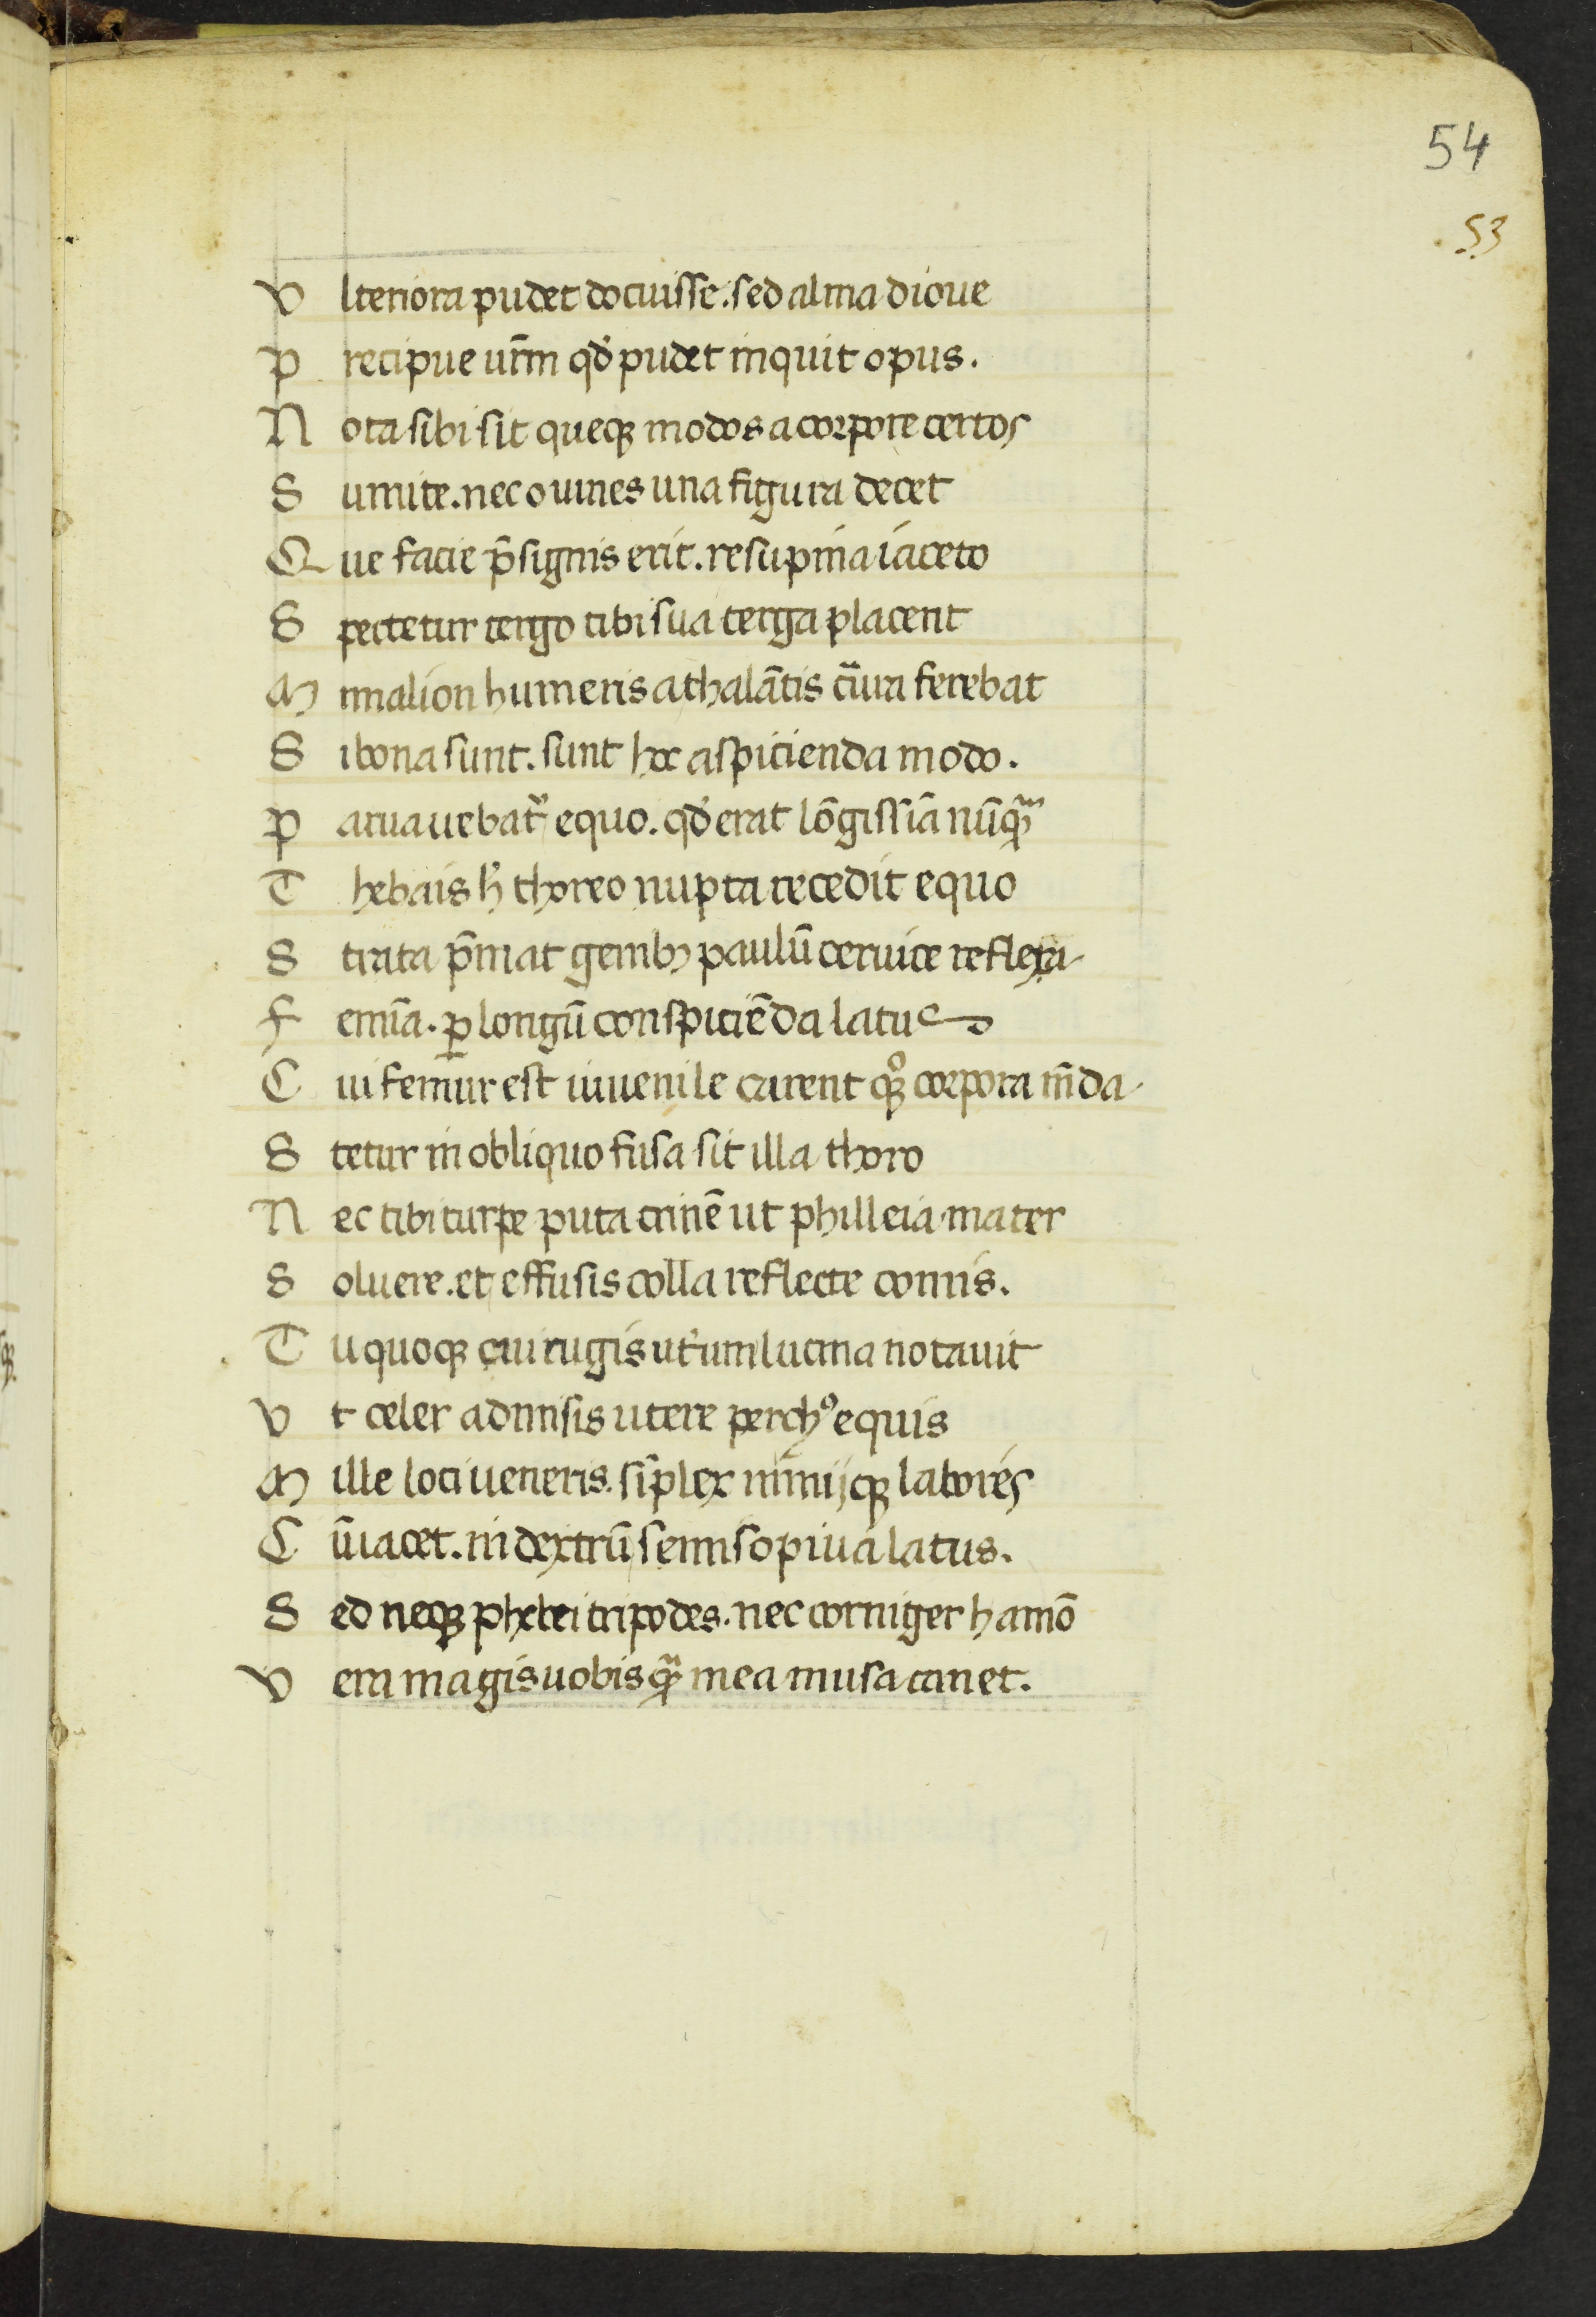 54
53
Vlteriora pudet docuisse. sed alma dioue
Precipue ur̄m qđ pudet inquit opus.
Nota sibi sit queqꝫ modos a corpore certos
Sumite. nec omnes una figura decet
Que facie p̄signis erit. resupina iaceto
Spectetur tergo tibi sua terga placent
Minalion humeris athalātis crura ferebat
Si bona sunt. sunt hoc aspicienda modo.
Parua uebat᷑ equo. qđ erat lōgissiā nūꝗᷓ
Thebais h̄ thoreo nupta recedit equo
Strata p̄mat genibꝫ paulū ceruice reflexa
Femīa. ꝑ longū conspiciēda latus
Cui femur est iuuenile carent qꝫ corpora m̄da
Stetur in obliquo fusa sit illa thoro
Nec tibi turpe puta crinē ut philleia mater
Soluere. et effusis colla reflecte comis.
Tu quoqꝫ cui rugis ut᷑um lucina notauit
Vt celer admisis utere perchꝰ equis
Mille loci ueneris. sīplex minijqꝫ labores
Cū iacet. in dextrū semisopiua latus.
Sed neqꝫ phebei tripodes. nec corniger hamō
Vera magis uobis ꝗᷓ mea musa canet.